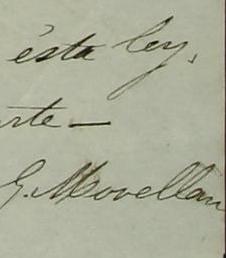 ésta ley.
rte—
G. Movellan